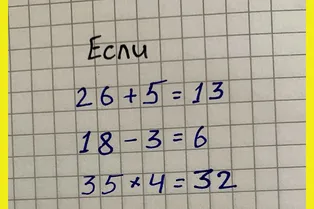 Если
26+5=13
18-3=6
35×4=32